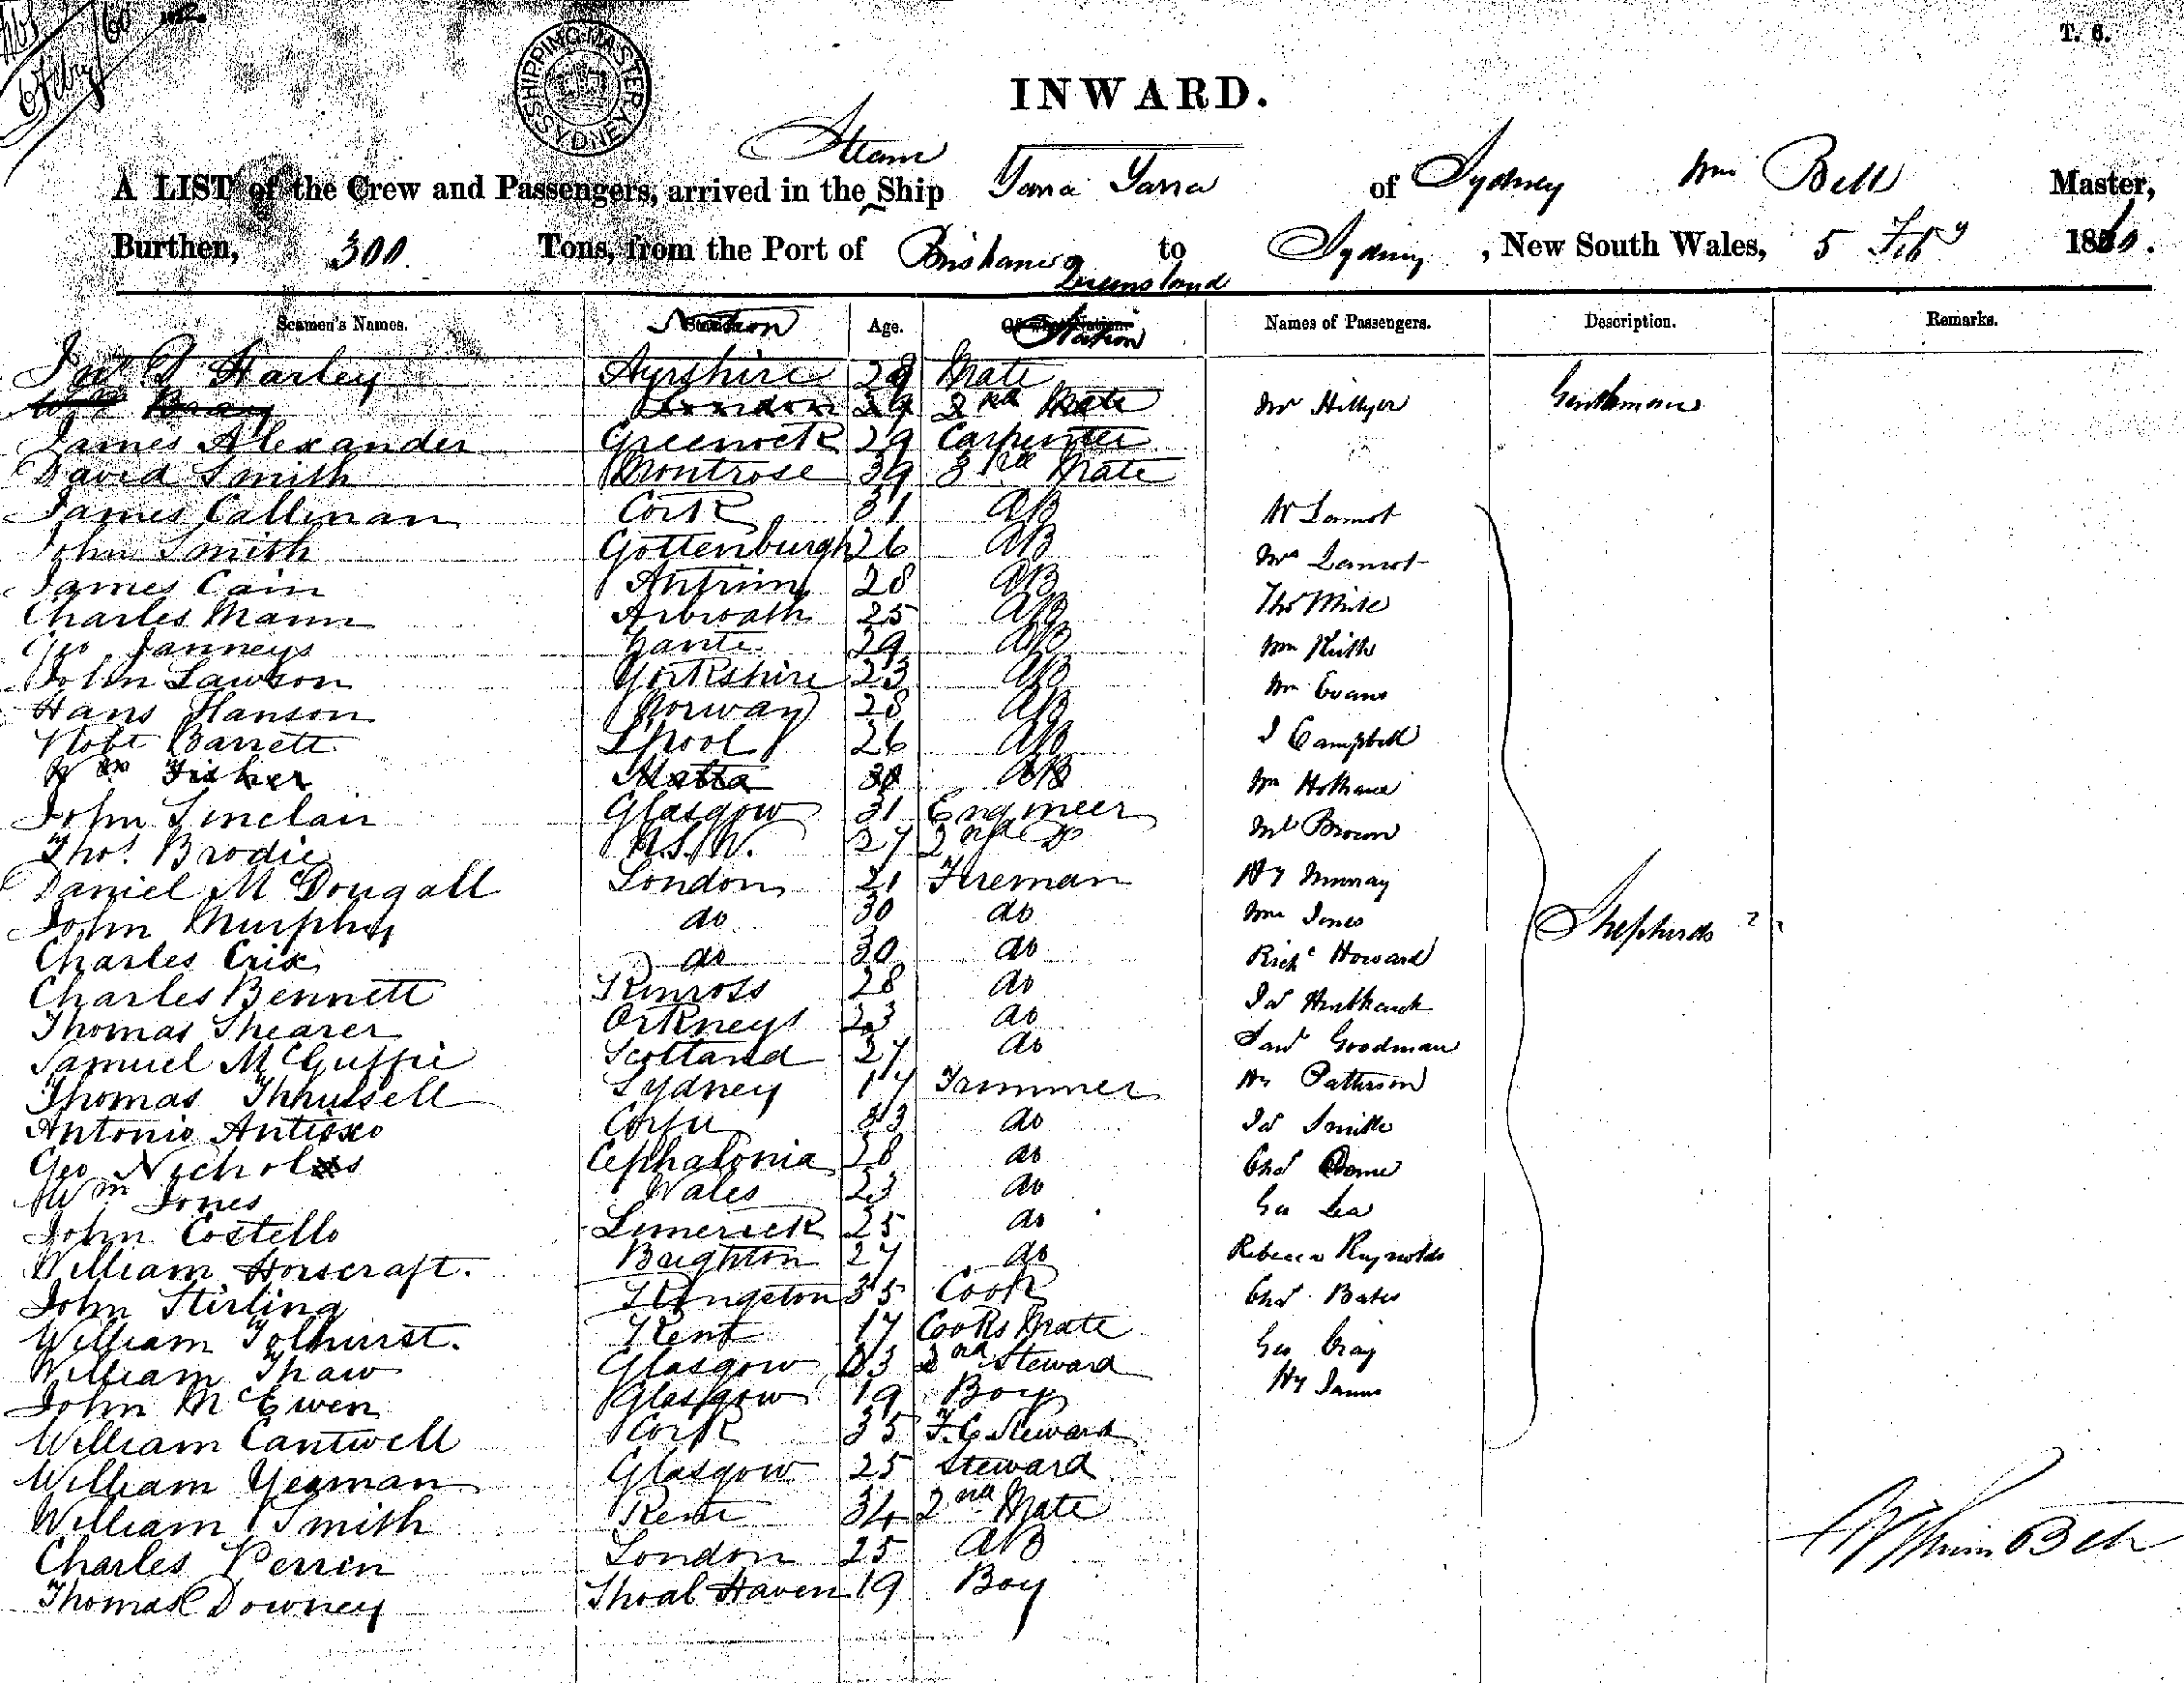 T. 6.
SHIPPING MASTER SYDNEY
INWARD.
Steam
A LIST of the Crew and Passengers, arrived in the Ship Yarra Yarra of Sydney Wm Bell Master,
Burthen, 300 Tons, from the Port of Brisbane Queensland to Sydney, New South Wales, 5 Feby 1860.
Seamen's Names. Nation Age. Station Names of Passengers. Description. Remarks.
Jno D Harley Ayrshire 28 Mate
Wm Bray London 29 2nd Mate Mr Hillyer Gentleman
James Alexander Greenock 29 Carpenter
David Smith Montrose 39 3rd Mate
James Callinan Cork 31 AB W Lamot
John Smith Gottenburgh 26 AB Mrs Lamot
James Cain Antrim 28 AB
Charles Mann Arbroath 25 AB Thos
Geo Janneys Zante 29 AB Wm Keith
John Lawson Yorkshire 23 AB Wm Evans
Hans Hanson Norway 28 AB
Robt Barrett Lpool 26 AB J Campbell
Wm Fisher Malta 30 AB Wm
John Sinclair Glasgow 31 Engineer
Thos Brodie N.S.W. 27 2nd Do Ml Brown
Daniel McDougall London 21 Fireman Hy Murray
John Murphy do 30 do Wm Jones
Charles Crix do 30 do Richd Howard Shepherds
Charles Bennett Kinross 28 do Jas
Thomas Shearer Orkneys 23 do
Samuel McGuffie Scotland 27 do Saml Goodman
Thomas Thrussell Sydney 17 Trimmer Hy Patterson
Antonio Antioxo Corfu 33 do Jas Smith
Geo Nicholas Cephalonia 28 do Chas
Wm Jones Wales 23 do Geo Lea
John Costello Limerick 25 do
William Horscraft. Brighton 27 do Rebecca Reynolds
John Stirling Kingston 35 Cook Chas Bates
William Tolhurst. Kent 17 Cooks Mate
William Thaw Glasgow 33 2nd Steward Geo Craig
John McEwen Glasgow 19 Boy Hy James
William Cantwell Cork 35 F.C. Steward
William Yeaman Glasgow 25 Steward
William Smith Kent 34 2nd Mate
Charles Perrin London 25 AB
Thomas Downey Shoal Haven 19 Boy